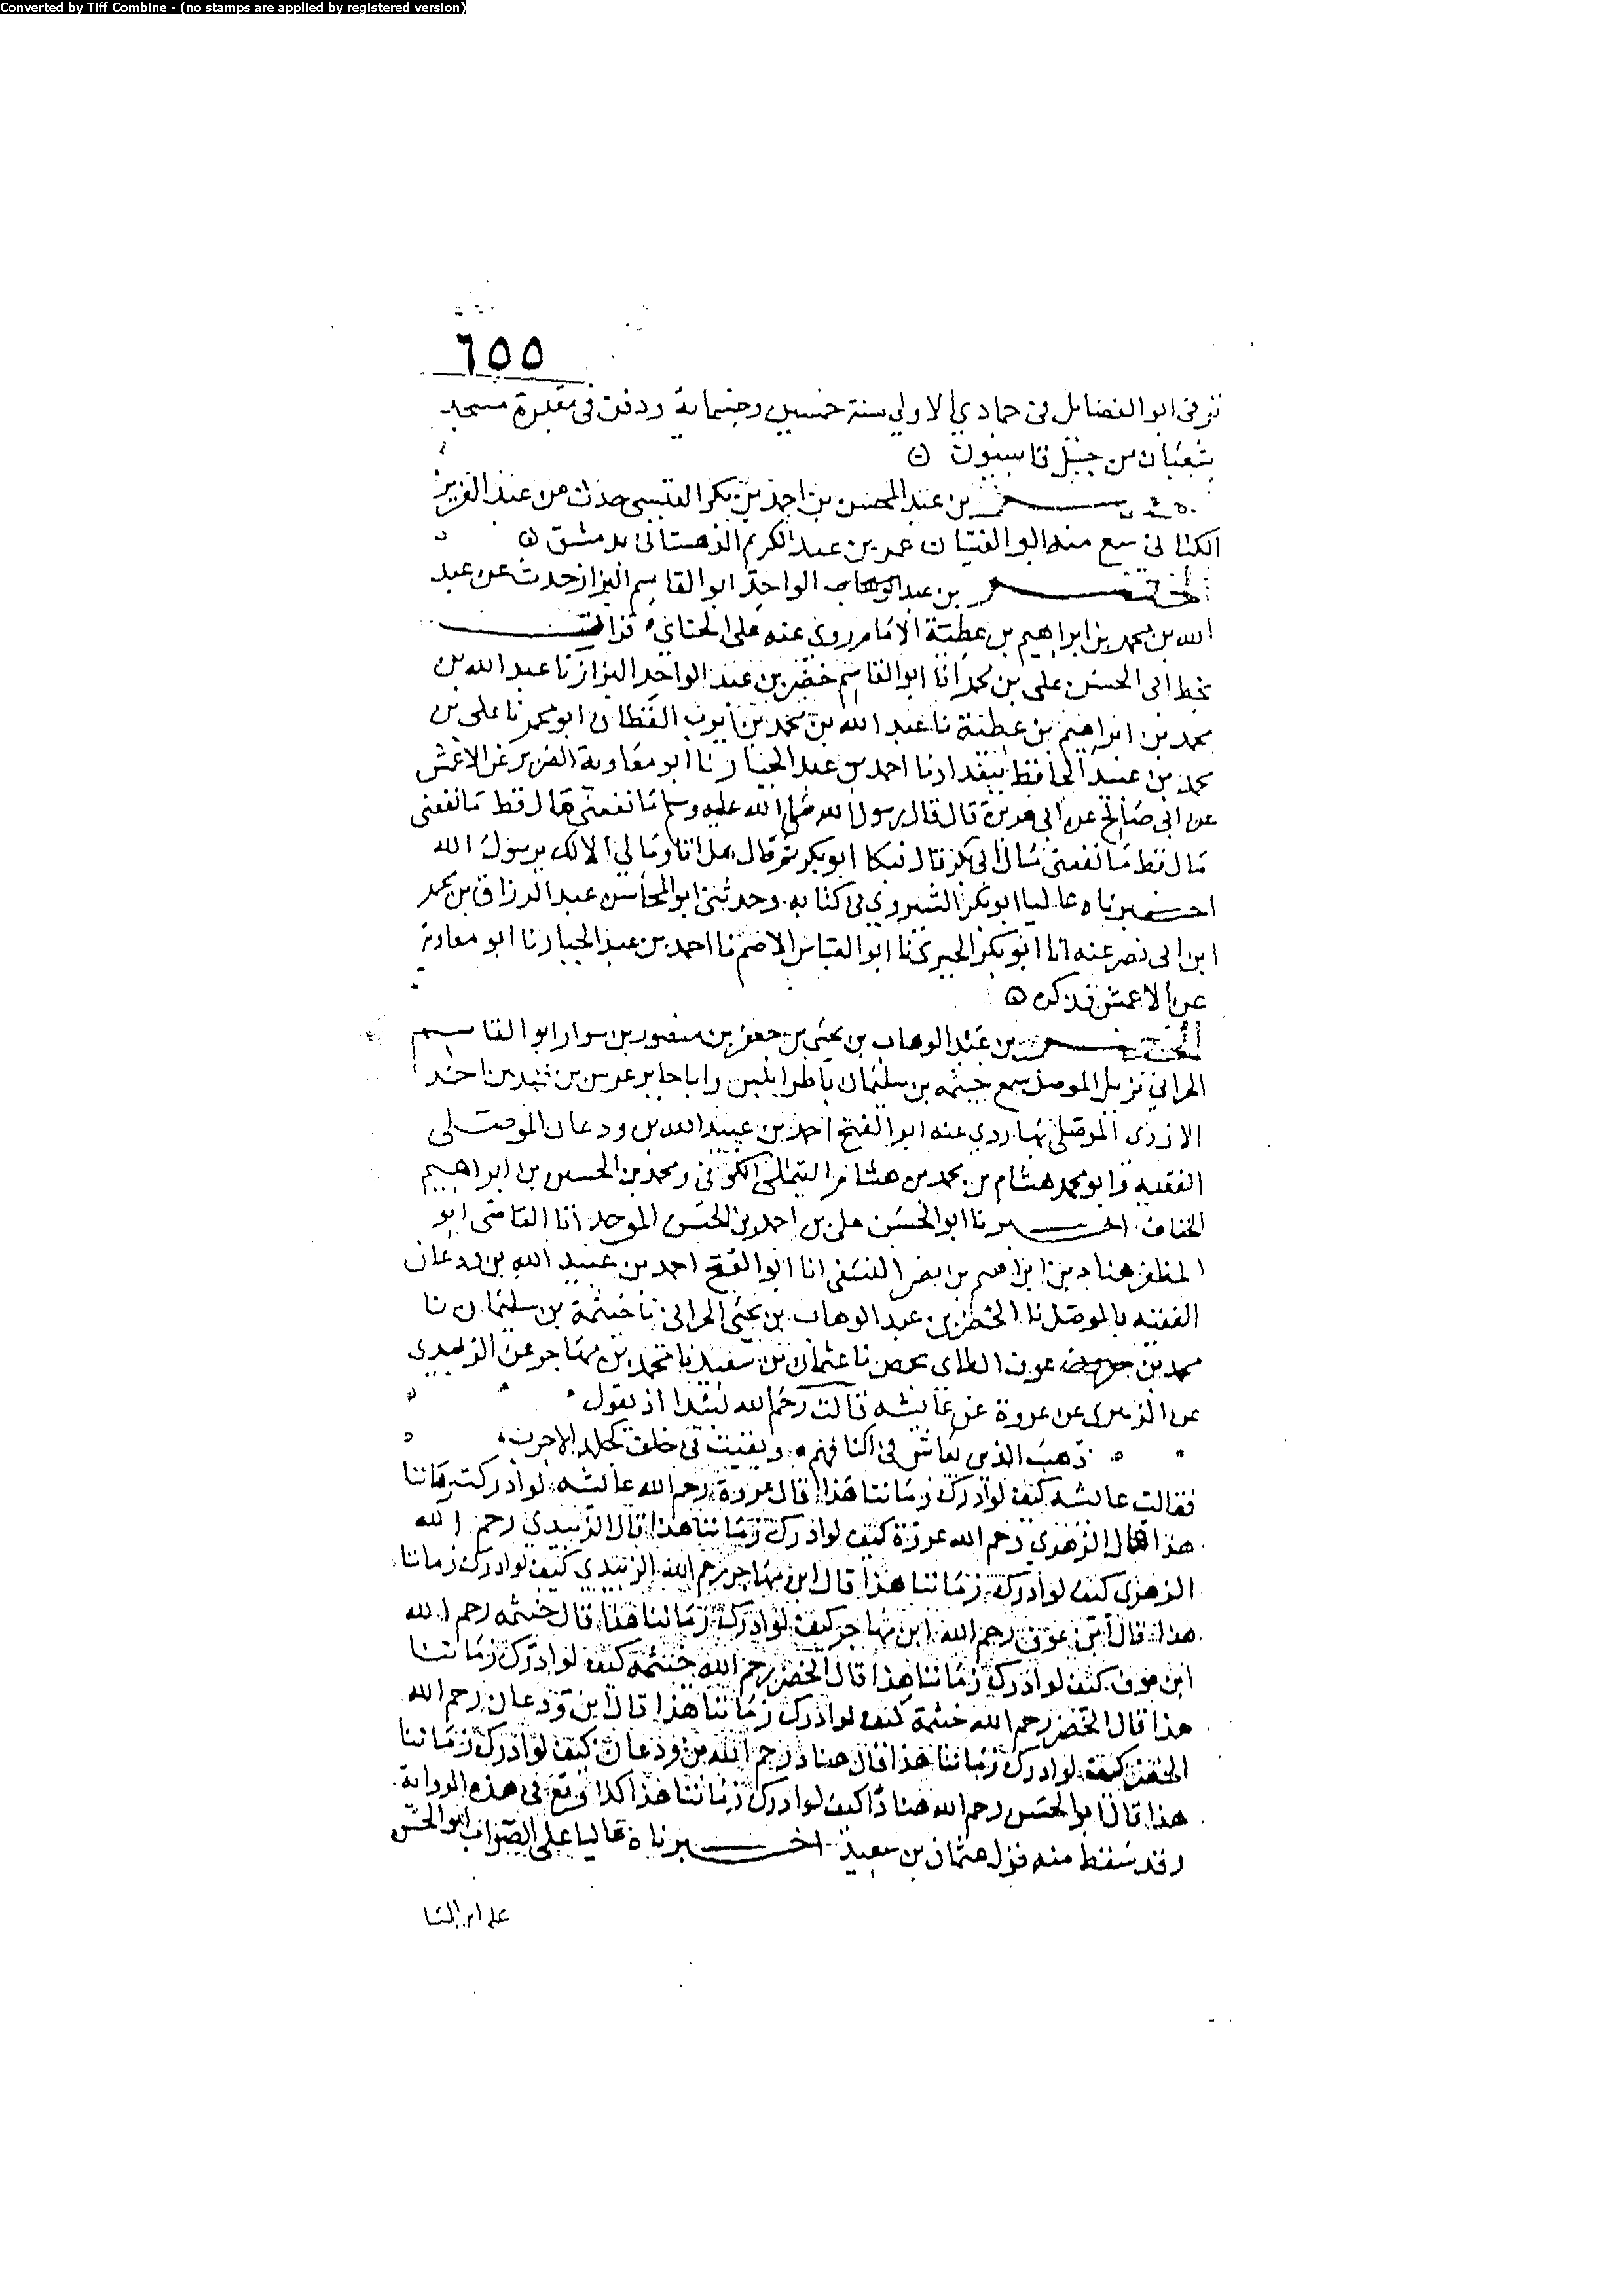 Converted by Tiff Combine - (no stamps are applied by registered version)
٦٥٥
توفى ابو الفضايل فى جمادي الاولي سنة خمسين وخمسماية ودفن فى مقبرة مسجد
شعبان من جبل قاسيون
بن عبد المحسن بن احمد بن بكر القيسى حدث عن عبد العزيز
الكتانى سمع منه ابو الفتيان عمر بن عبد الكريم الدهستانى بدمشق
الخضر بن عبد الوهاب الواحد ابو القاسم البزاز حدث عن عبد
الله بن محمد بن ابراهيم بن عطية الامام روى عنه على الحناي قرات
بخط ابى الحسن على بن محمد انا ابو القاسم خضر بن عبد الواحد البزاز نا عبد الله بن
محمد بن ابراهيم بن عطية نا عبد الله بن محمد بن ايوب القطان ابو محمد نا على بن
محمد بن عبيد الحافظ ببغداد نا احمد بن عبد الجبار نا ابو معاوية الضرير عن الاعمش
عن ابى صالح عن ابى هريرة قال قال رسول الله صلى الله عليه وسلم ما نفعنى مال قط ما نفعنى
مال قط ما نفعنى مال ابى بكر قال فبكا ابو بكر ثم قال هل انا ومالي الا لك يرسول الله
اخبرناه عاليا ابو بكر الشيروي فى كتابه وحدثنى ابو المحاسن عبد الرزاق بن محمد
ابن ابى نصر عنه انا ابو بكر الحيرى نا ابو العباس الاصم نا احمد بن عبد الجبار نا ابو معاوية
عن الاعمش فذكره
الخضر بن عبد الوهاب بن يحيى بن جعفر بن منصور بن سوار ابو القاسم
الحرانى نزيل الموصل سمع خيثمه بن سليمان باطرابلس وابا جابر بن احمد
الازدى الموصلى بها روي عنه ابو الفتح احمد بن عبيد الله بن ودعان الموصلى
الفقيه وابو محمد هشام بن محمد بن هشام التيملى الكوفى ومحمد بن الحسين بن ابراهيم
الخفاف اخبرنا ابو الحسن على بن احمد بن الحسن الموحد انا القاضى ابو
المظفر هناد بن ابراهيم بن نصر النسفى انا ابو الفتح احمد بن عبيد الله بن ودعان
الفقيه بالموصل نا الخضر بن عبد الوهاب بن يحيى الحرانى نا خيثمة بن سليمان نا
محمد بن عوف الطاى بحمص نا عثمان بن سعيد نا محمد بن مهاجر عن الزبيدى
عن الزهرى عن عروة عن عايشه قالت رحم الله لبيدا اذ يقول
ذهب الذين يعاش فى اكنافهم وبقيت فى خلف كجلد الاجرب
فقالت عايشه كيف لو ادرك زماننا هذا قال عروة رحم الله عايشه لو ادركت زماننا
هذا قال الزهري رحم الله عروة كيف لو ادرك زماننا هذا قال الزبيدي رحم الله
الزهرى كيف لو ادرك زماننا هذا قال ابن مهاجر رحم الله الزبيدي كيف لو ادرك زماننا
هذا قال ابن عوف رحم الله ابن مهاجر كيف لو ادرك زماننا هذا قال خيثمه رحم الله
ابن عوف كيف لو ادرك زماننا هذا قال الخضر رحم الله خيثمه كيف لو ادرك زماننا
هذا قال الخضر رحم الله خيثمة كيف لو ادرك زماننا هذا قال ابن ودعان رحم الله
الخضر كيف لو ادرك زماننا هذا قال هناد رحم الله بن ودعان كيف لو ادرك زماننا
هذا قال ابو الحسن رحم الله هنادا كيف لو ادرك زماننا هذا كذا وقع فى هذه الرواية
وقد سقط منه قول عثمان بن سعيد اخبرناه عاليا على الصواب ابو الحسن